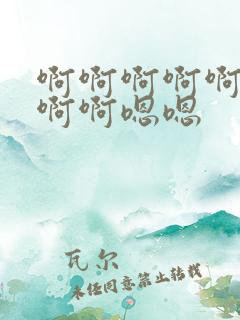 啊啊啊啊啊
啊啊嗯嗯
瓦尔
未经同意禁止转载